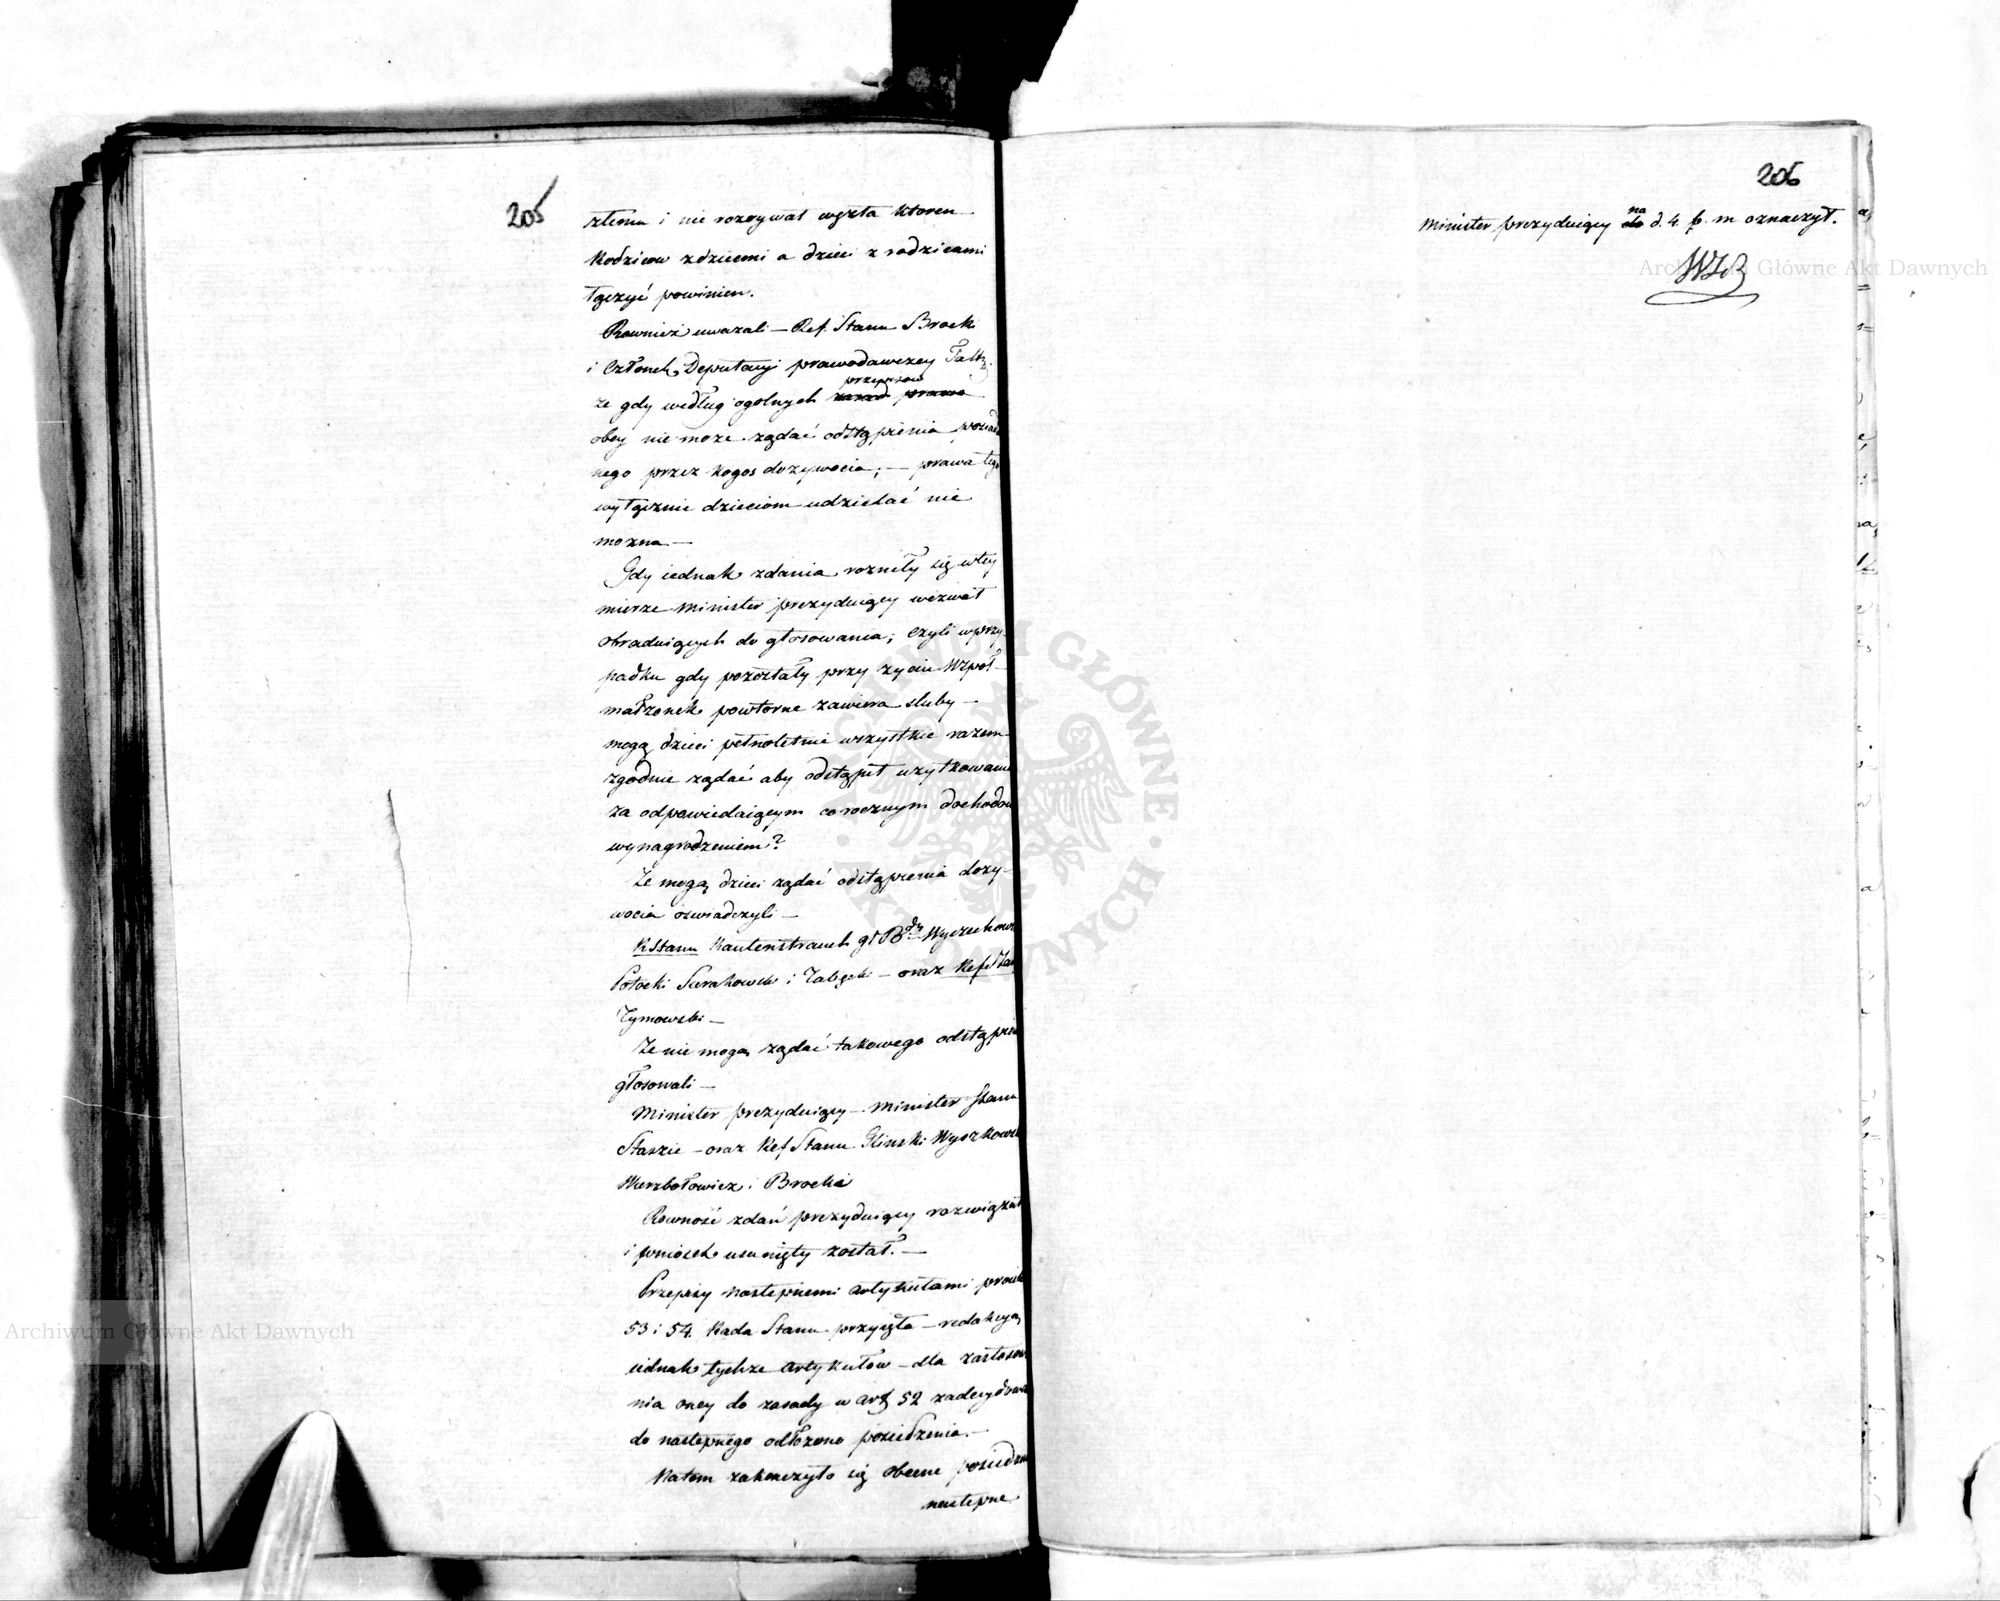 205
złemu i nie rozrywał węzła ktoren
Rodziców z dziećmi a dzieci z rodzicami
łączyć powinien.
Rownież uwazali – Ref. Stanu Brock
i Członek Deputacyi prawodawczey
przepisow
że gdy według ogolnych zasad prawa
obcy nie moze ządać odstąpienia posiada
nego przez kogos dozywocia; – prawa tego
wyłącznie dzieciom udzielać nie
mozna –
Gdy iednak zdania rozniły się w tey
mierze Minister prezyduiący wezwał
obraduiących do głosowania; czyli w przy
padku gdy pozostały przy zyciu Wspoł
małzonek powtorne zawiera sluby –
mogą dzieci pełnoletnie wszystkie razem
zgodnie ządać aby odstąpił uzytkowanie
za odpowiedaiącym corocznym dochodom
wynagrodzeniem?
Ze mogą dzieci ządać odstąpienia dozy-
wocia oswiadczyli –
R Stanu Kautenstrauch Wyczechow
Potocki Surakowski i Załęski – oraz Ref Stan
Tymowski –
Ze nie mogą ządać takowego odstąpien
głosowali –
Minister prezyduiący – Minister Stanu
Staszic – oraz Ref Stanu Glinski Wyszkowski
Wierzbołowicz i Brocki
Rowność zdań prezyduiący rozwiązał
i wniosek usunięty został. –
Przepisy następnemi artykułami
53 i 54. Rada Stanu przyięła – redakcyą
iednak tychże artykułow – dla zastosowa
nia oney do zasady w art 52 zadecydowan
do następnego odłozono posiedzenia. –
Na tem zakonczyło się obecne posiedzen
następne
206
na
Minister prezyduiący do d. 4. b. m oznaczył.
Archiwum Główne Akt Dawnych
ARCHIWUM GŁÓWNE AKT DAWNYCH
Archiwum Główne Akt Dawnych